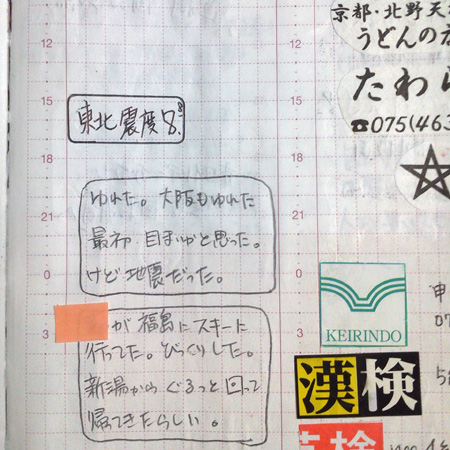 12
15
18
21
0
3
東北震度8.8
ゆれた。大阪もゆれた
最初 目まいかと思った。
けど地震だった。
が福島にスキーに
行ってた。びっくりした。
新潟からぐるっと回って
帰てきたらしい。
12
15
18
21
0
3
京都・北野天
うどんの
たわら
☎075(463
KEIRINDO
申
07
漢検